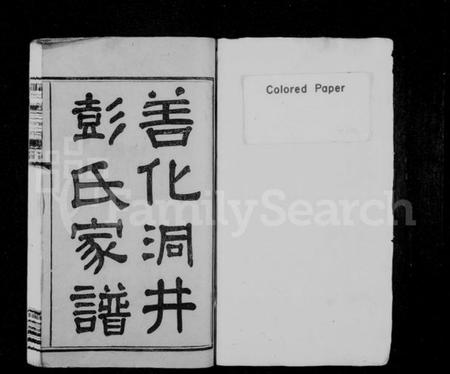 善化洞井
彭氏家譜
Colored Paper
FamilySearch